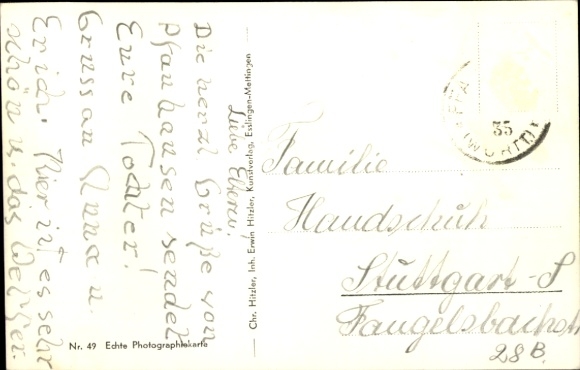 Liebe Eltern!
Die herzl Grüße von
Pfauhausen sendet
Eure Tochter!
Gruss an Anna u.
Erich. Hier ist es sehr
schön u. das Wetter.
Chr. Hitzler, Inh. Erwin Hitzler, Kunstverlag, Esslingen-Mettingen
Nr. 49 Echte Photographiekarte
35
(WÜRTT)
Familie
Handschuh
Stuttgart-S
Fangelsbachstr
28B.